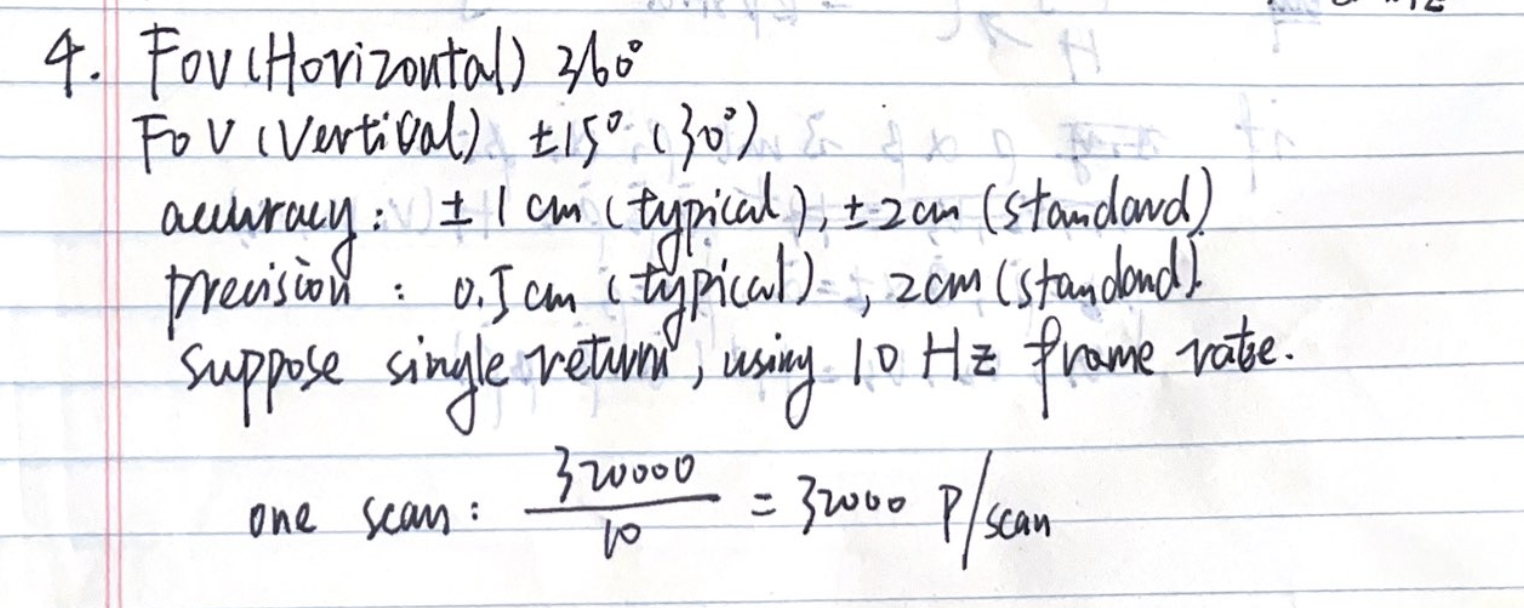 4. FoV (Horizontal) 360°
FoV (Vertical) ±15° (30°)
accuracy: ±1 cm (typical), ±2cm (standard)
precision : 0.5 cm (typical), 2cm (standard).
suppose single return, using 10 Hz frame rate.
one scan: 320000/10 = 32000 P/scan